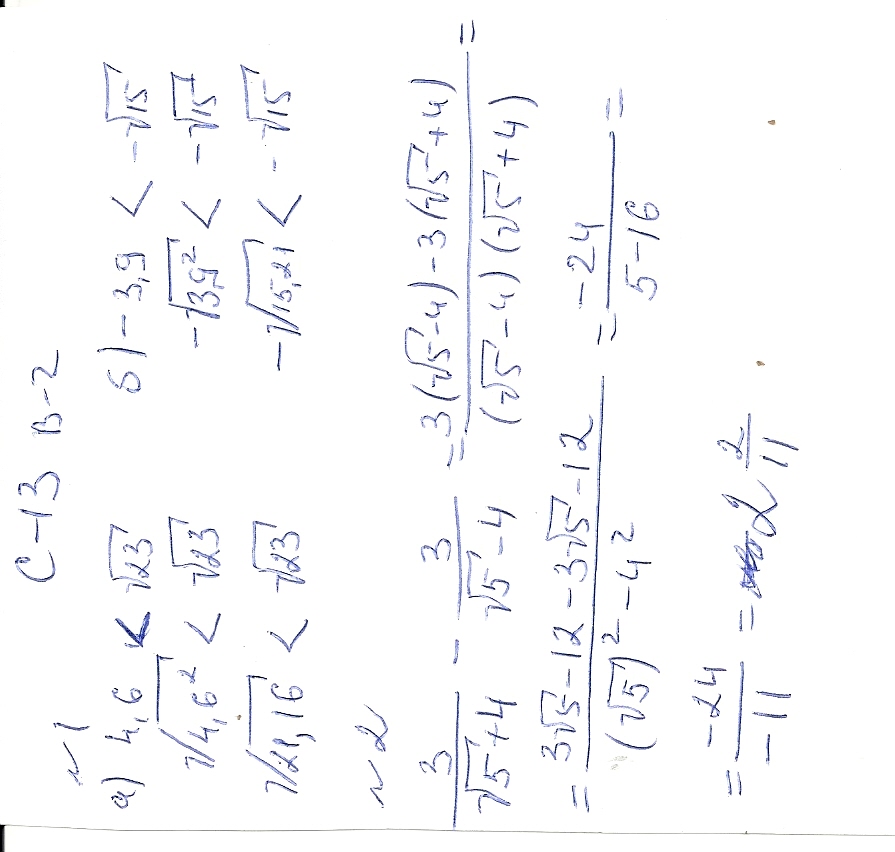 С-13 В-2
№1
а) 4,6 < √23 б) -3,9 < -√15
√4,6² < √23 -√3,9² < -√15
√21,16 < √23 -√15,21 < -√15
№2
3/(√5+4) - 3/(√5-4) = (3(√5-4)-3(√5+4))/((√5-4)(√5+4)) =
= (3√5-12-3√5-12)/((√5)²-4²) = -24/(5-16) =
= -24/-11 = 2 2/11